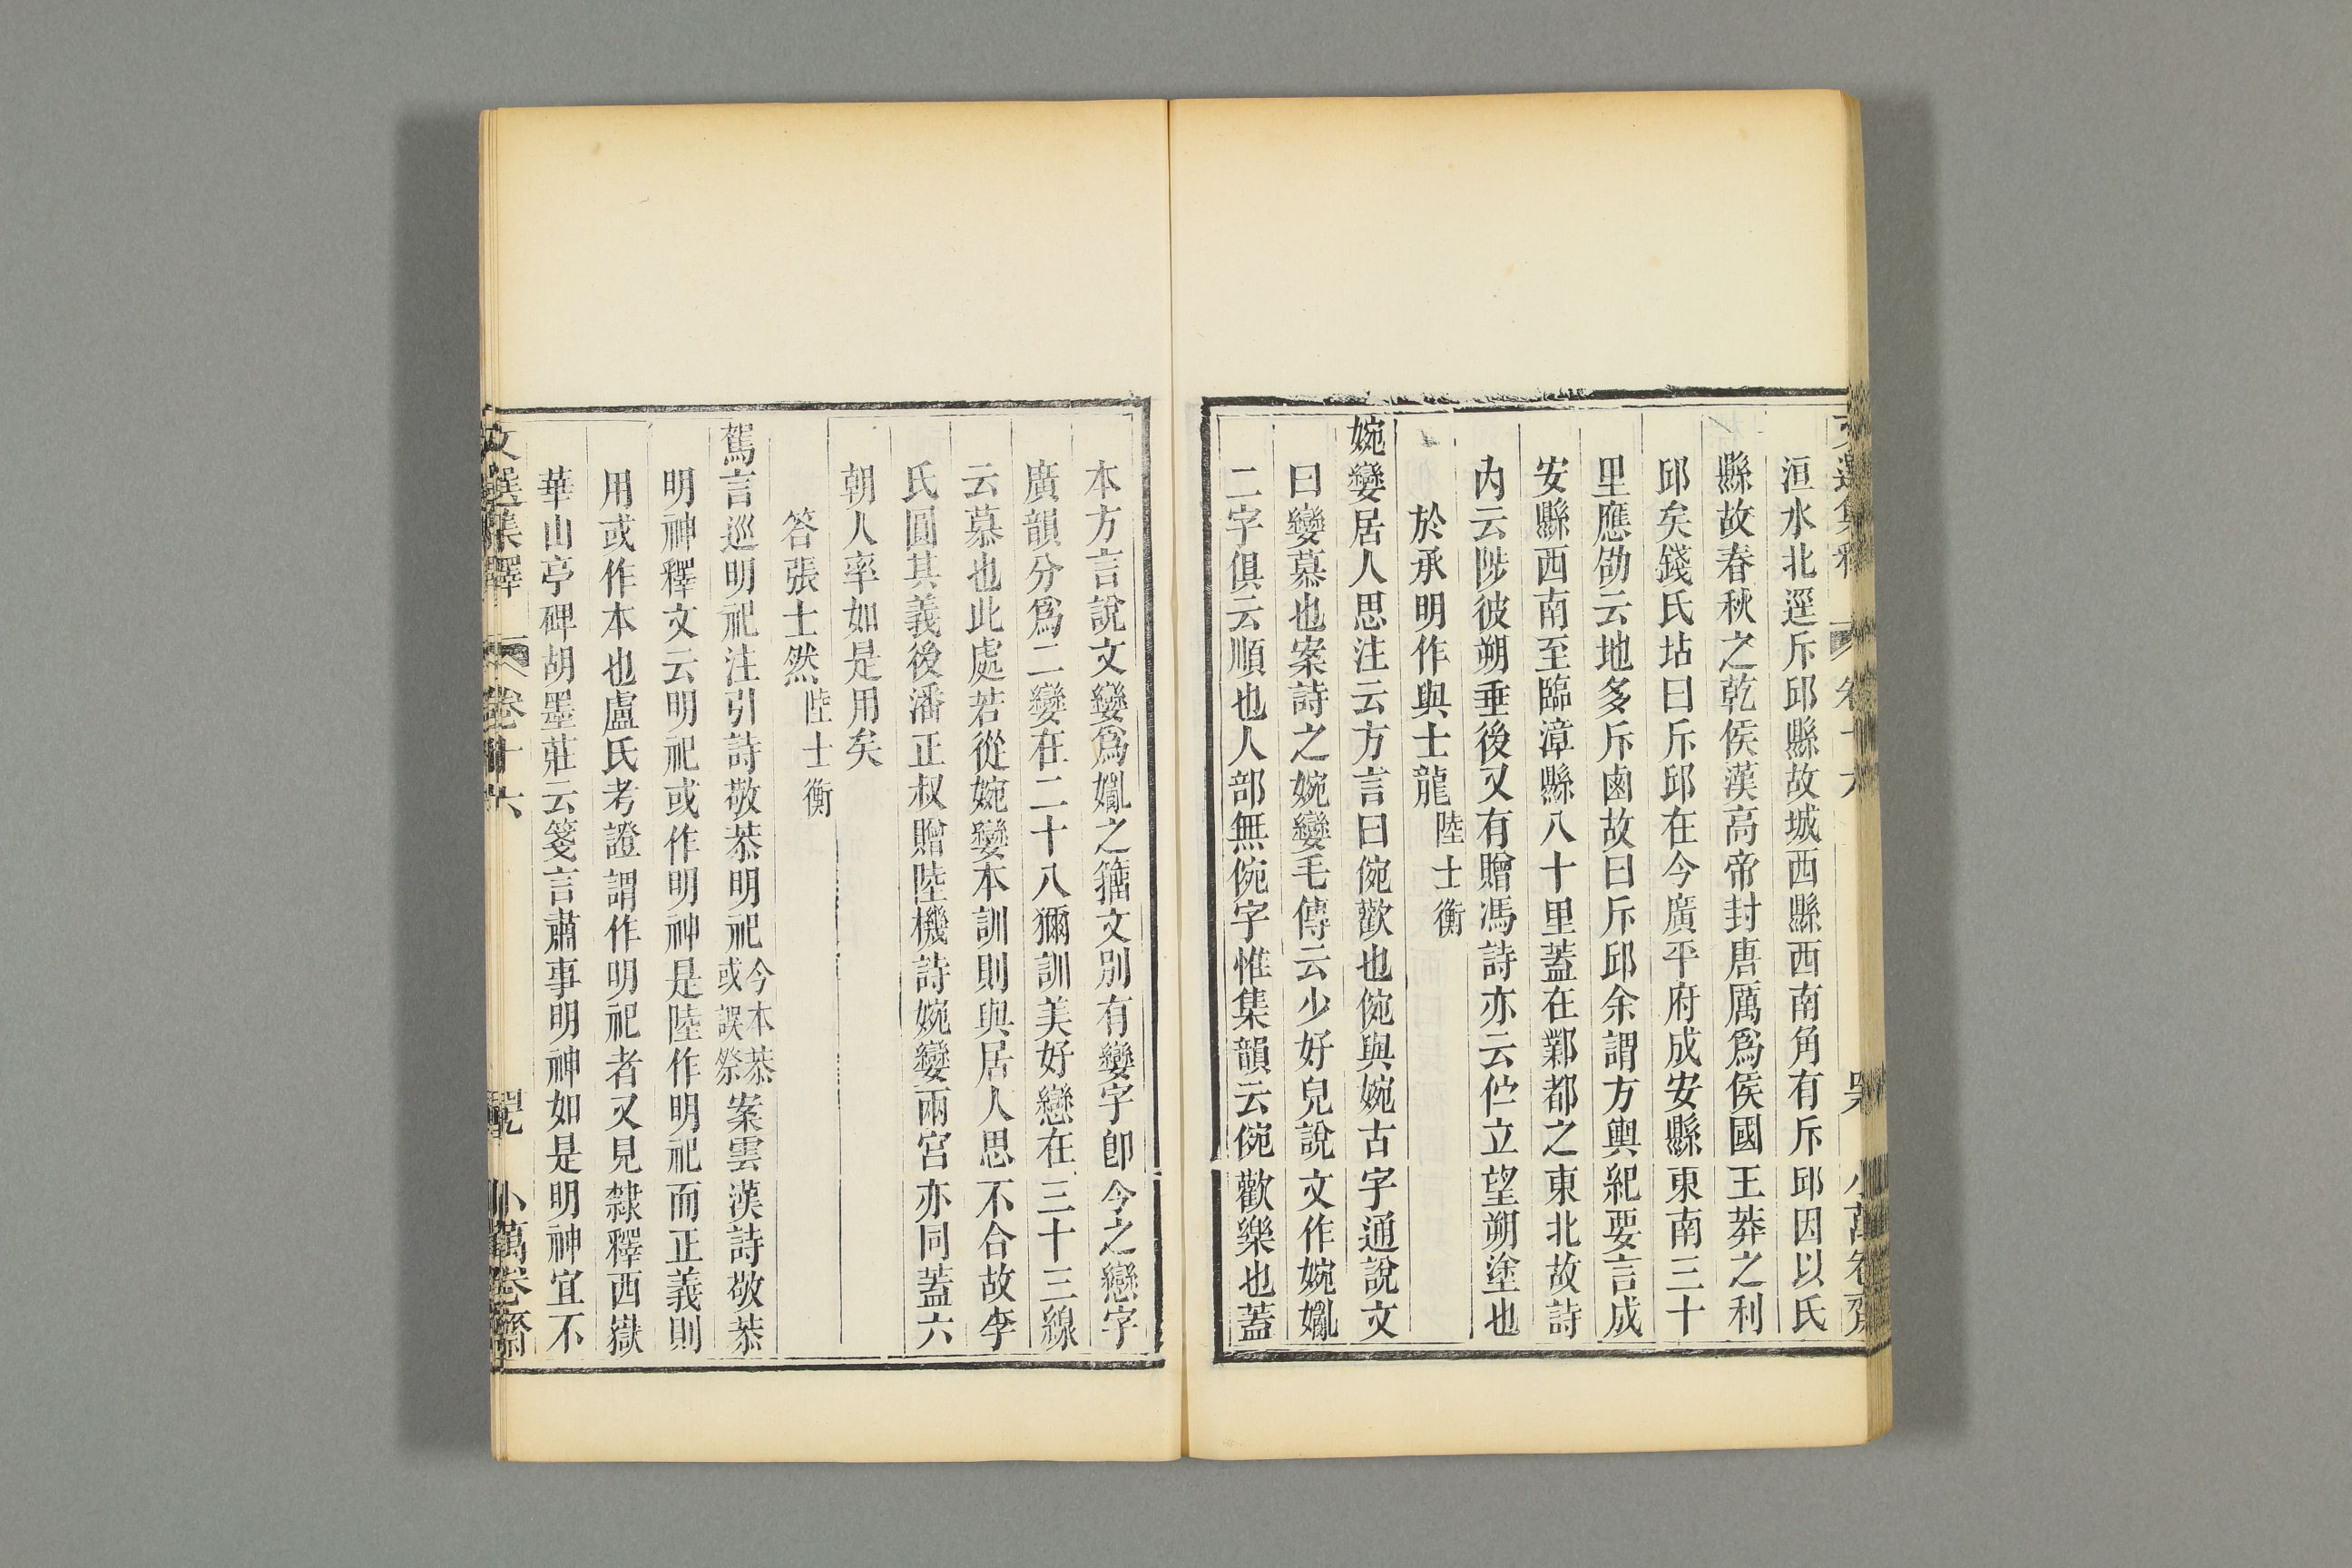 洹水北逕斥邱縣故城西縣西南角有斥邱因以氏
縣故春秋之乾侯漢高帝封唐厲爲侯國王莽之利
邱矣錢氏坫曰斥邱在今廣平府成安縣東南三十
里應劭云地多斥鹵故曰斥邱余謂方輿紀要言成
安縣西南至臨漳縣八十里蓋在鄴都之東北故詩
內云陟彼朔垂後又有贈馮詩亦云伫立望朔塗也
於承明作與士龍 陸士衡
婉孌居人思注云方言曰惋歡也惋與婉古字通說文
曰孌慕也案詩之婉孌毛傳云少好皃說文作婉㜻
二字俱云順也人部無惋字惟集韻云惋歡樂也蓋
本方言說文孌爲㜻之籀文別有孌字卽今之戀字
廣韻分爲二孌在二十八獮訓美好戀在三十三線
云慕也此處若從婉孌本訓則與居人思不合故李
氏圓其義後潘正叔贈陸機詩婉孌兩宮亦同蓋六
朝人率如是用矣
答張士然 陸士衡
駕言巡明祀注引詩敬恭明祀今本恭或誤祭案雲漢詩敬恭
明神釋文云明祀或作明神是陸作明祀而正義則
用或作本也盧氏考證謂作明祀者又見隸釋西嶽
華山亭碑胡墨莊云箋言肅事明神如是明神宜不
文選集釋 卷十六 小萬卷齋